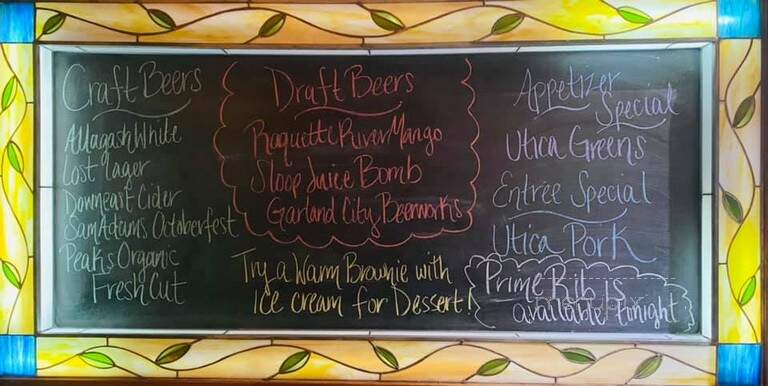 Craft Beers
Allagash White
Lost Lager
Downeast Cider
Sam Adams Octoberfest
Peaks Organic
Fresh Cut
Draft Beers
Raquette River Mango
Sloop Juice Bomb
Garland City Beerworks
Try a Warm Brownie with
Ice cream for Dessert!
Appetizer
Special
Utica Greens
Entrée Special
Utica Pork
Prime Rib is
available tonight